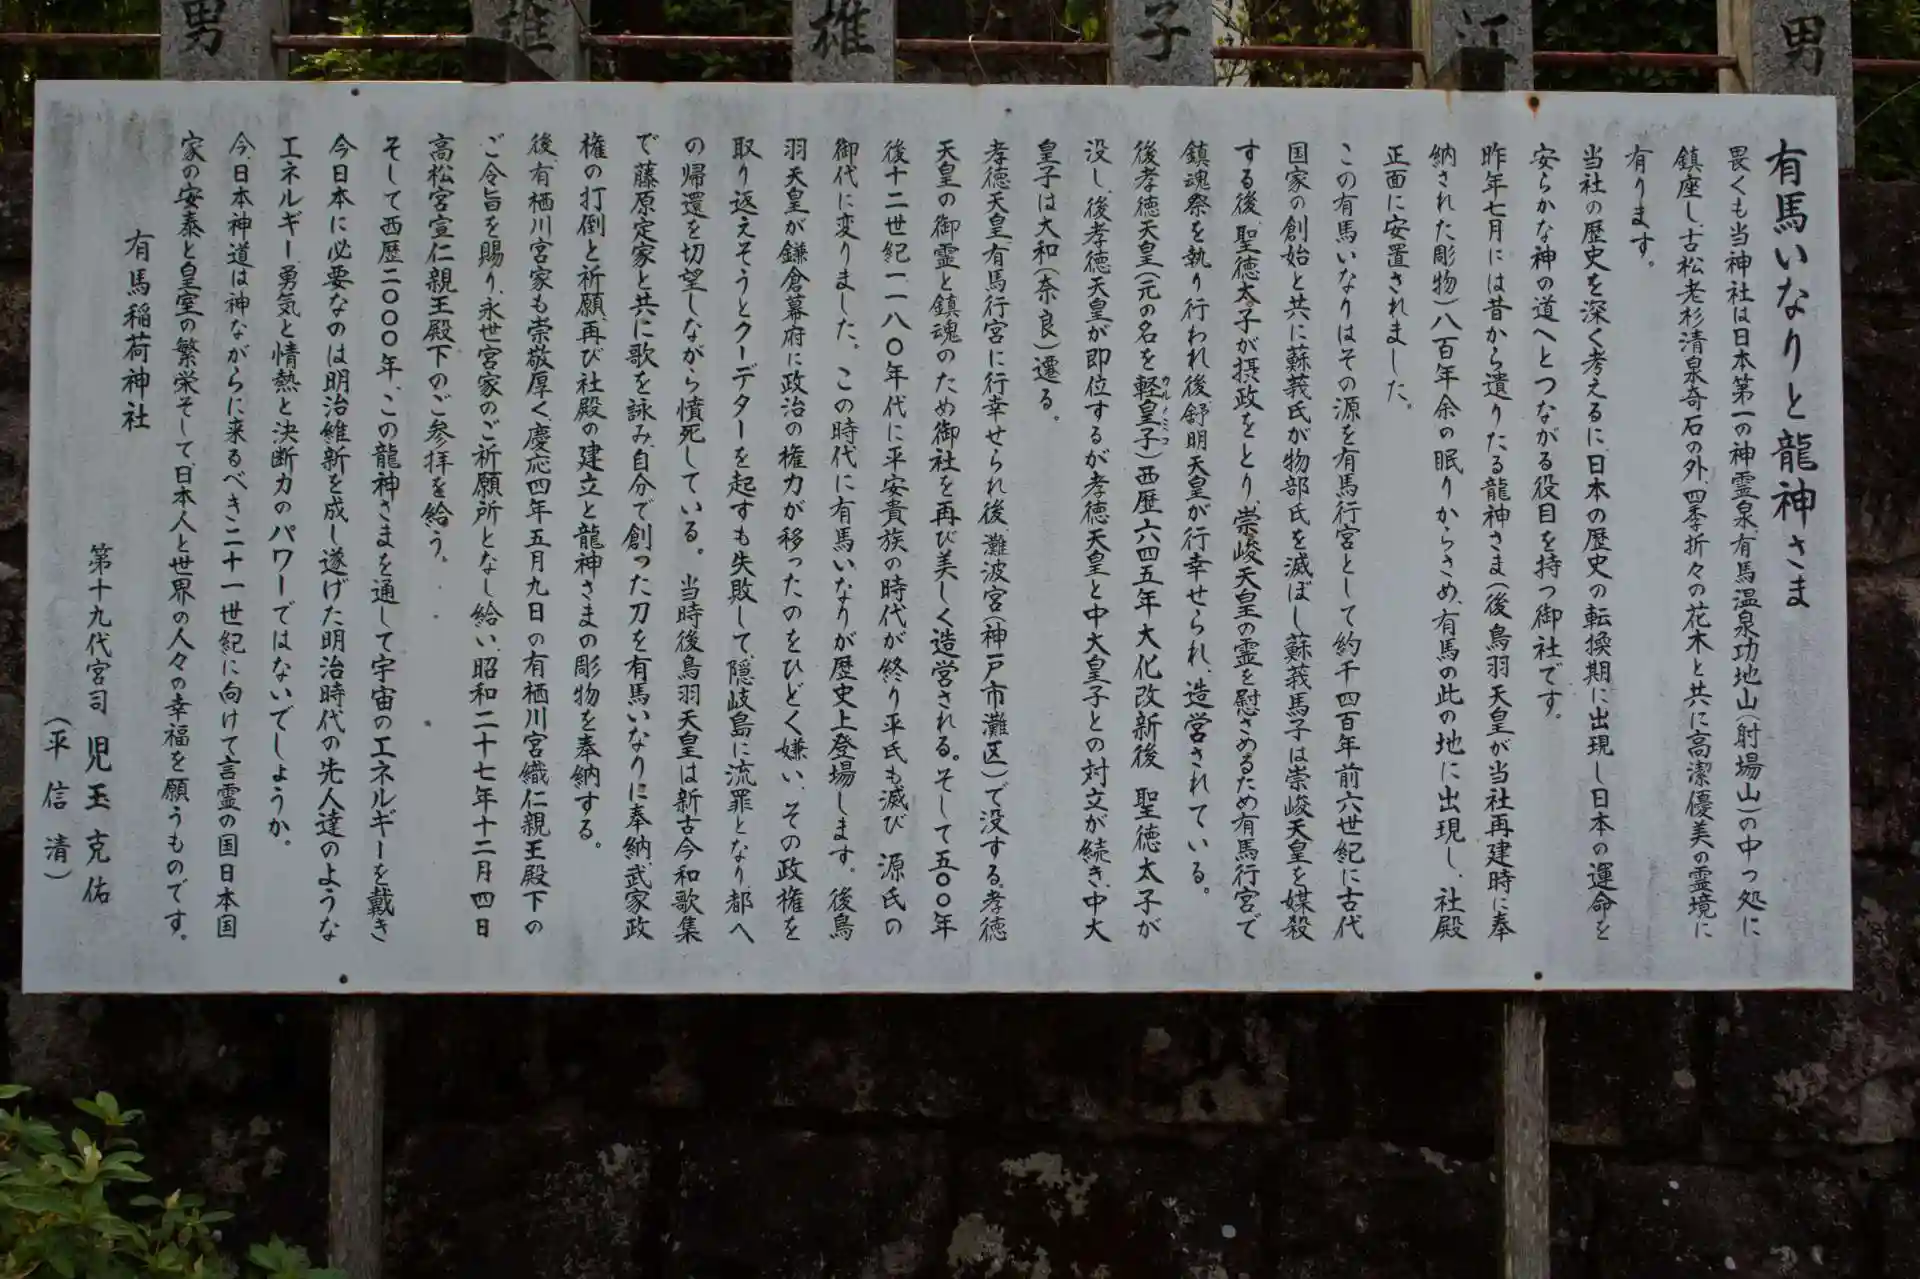 男
江
子
雄
雄
男
有馬いなりと龍神さま
畏くも当神社は日本第一の神霊泉、有馬温泉功地山(射場山)の中つ処に
鎮座し、古松老杉清泉奇石の外、四季折々の花木と共に高潔優美の霊境に
有ります。
当社の歴史を深く考えるに日本の歴史の転換期に出現し日本の運命を
安らかな神の道へとつながる役目を持つ御社です。
昨年七月には昔から遺りたる龍神さま(後鳥羽天皇が当社再建時に奉
納された彫物)八百年余の眠りからさめ、有馬の此の地に出現し、社殿
正面に安置されました。
この有馬いなりはその源を有馬行宮として約千四百年前六世紀に古代
国家の創始と共に蘇莪氏が物部氏を滅ぼし蘇莪馬子は崇峻天皇を媒殺
する後、聖徳太子が摂政をとり、崇峻天皇の霊を慰さめるため有馬行宮で
鎮魂祭を執り行われ後舒明天皇が行幸せられ、造営されている。
後孝徳天皇(元の名を軽皇子カルノミコ)西歴六四五年大化改新後 聖徳太子が
没し、後孝徳天皇が即位するが孝徳天皇と中大皇子との対立が続き、中大
皇子は大和(奈良)遷る。
孝徳天皇、有馬行宮に行幸せられ後、灘波宮(神戸市灘区)で没する、孝徳
天皇の御霊と鎮魂のため御社を再び美しく造営される。そして五〇〇年
後十二世紀一一八〇年代に平安貴族の時代が終り平氏も滅び 源氏の
御代に変りました。この時代に有馬いなりが歴史上登場します。後鳥
羽天皇が鎌倉幕府に政治の権力が移ったのをひどく嫌い、その政権を
取り返えそうとクーデターを起すも失敗して、隠岐島に流罪となり、都へ
の帰還を切望しながら憤死している。 当時後鳥羽天皇は新古今和歌集
で藤原定家と共に歌を詠み、自分で創った刀を有馬いなりに奉納、武家政
権の打倒と祈願、再び社殿の建立と龍神さまの彫物を奉納する。
後、有栖川宮家も崇敬厚く、慶応四年五月九日の有栖川宮織仁親王殿下の
ご令旨を賜り、永世宮家のご祈願所となし給い、昭和二十七年十二月四日
高松宮宣仁親王殿下のご参拝を給う。
そして西歴二〇〇〇年、この龍神さまを通して宇宙のエネルギーを戴き
今日本に必要なのは明治維新を成し遂げた明治時代の先人達のような
エネルギー、勇気と情熱と決断力のパワーではないでしょうか。
今、日本神道は神ながらに来るべき二十一世紀に向けて言霊の国日本国
家の安泰と皇室の繁栄そして、日本人と世界の人々の幸福を願うものです。
有馬稲荷神社
第十九代宮司 児玉克佑
(平信清)